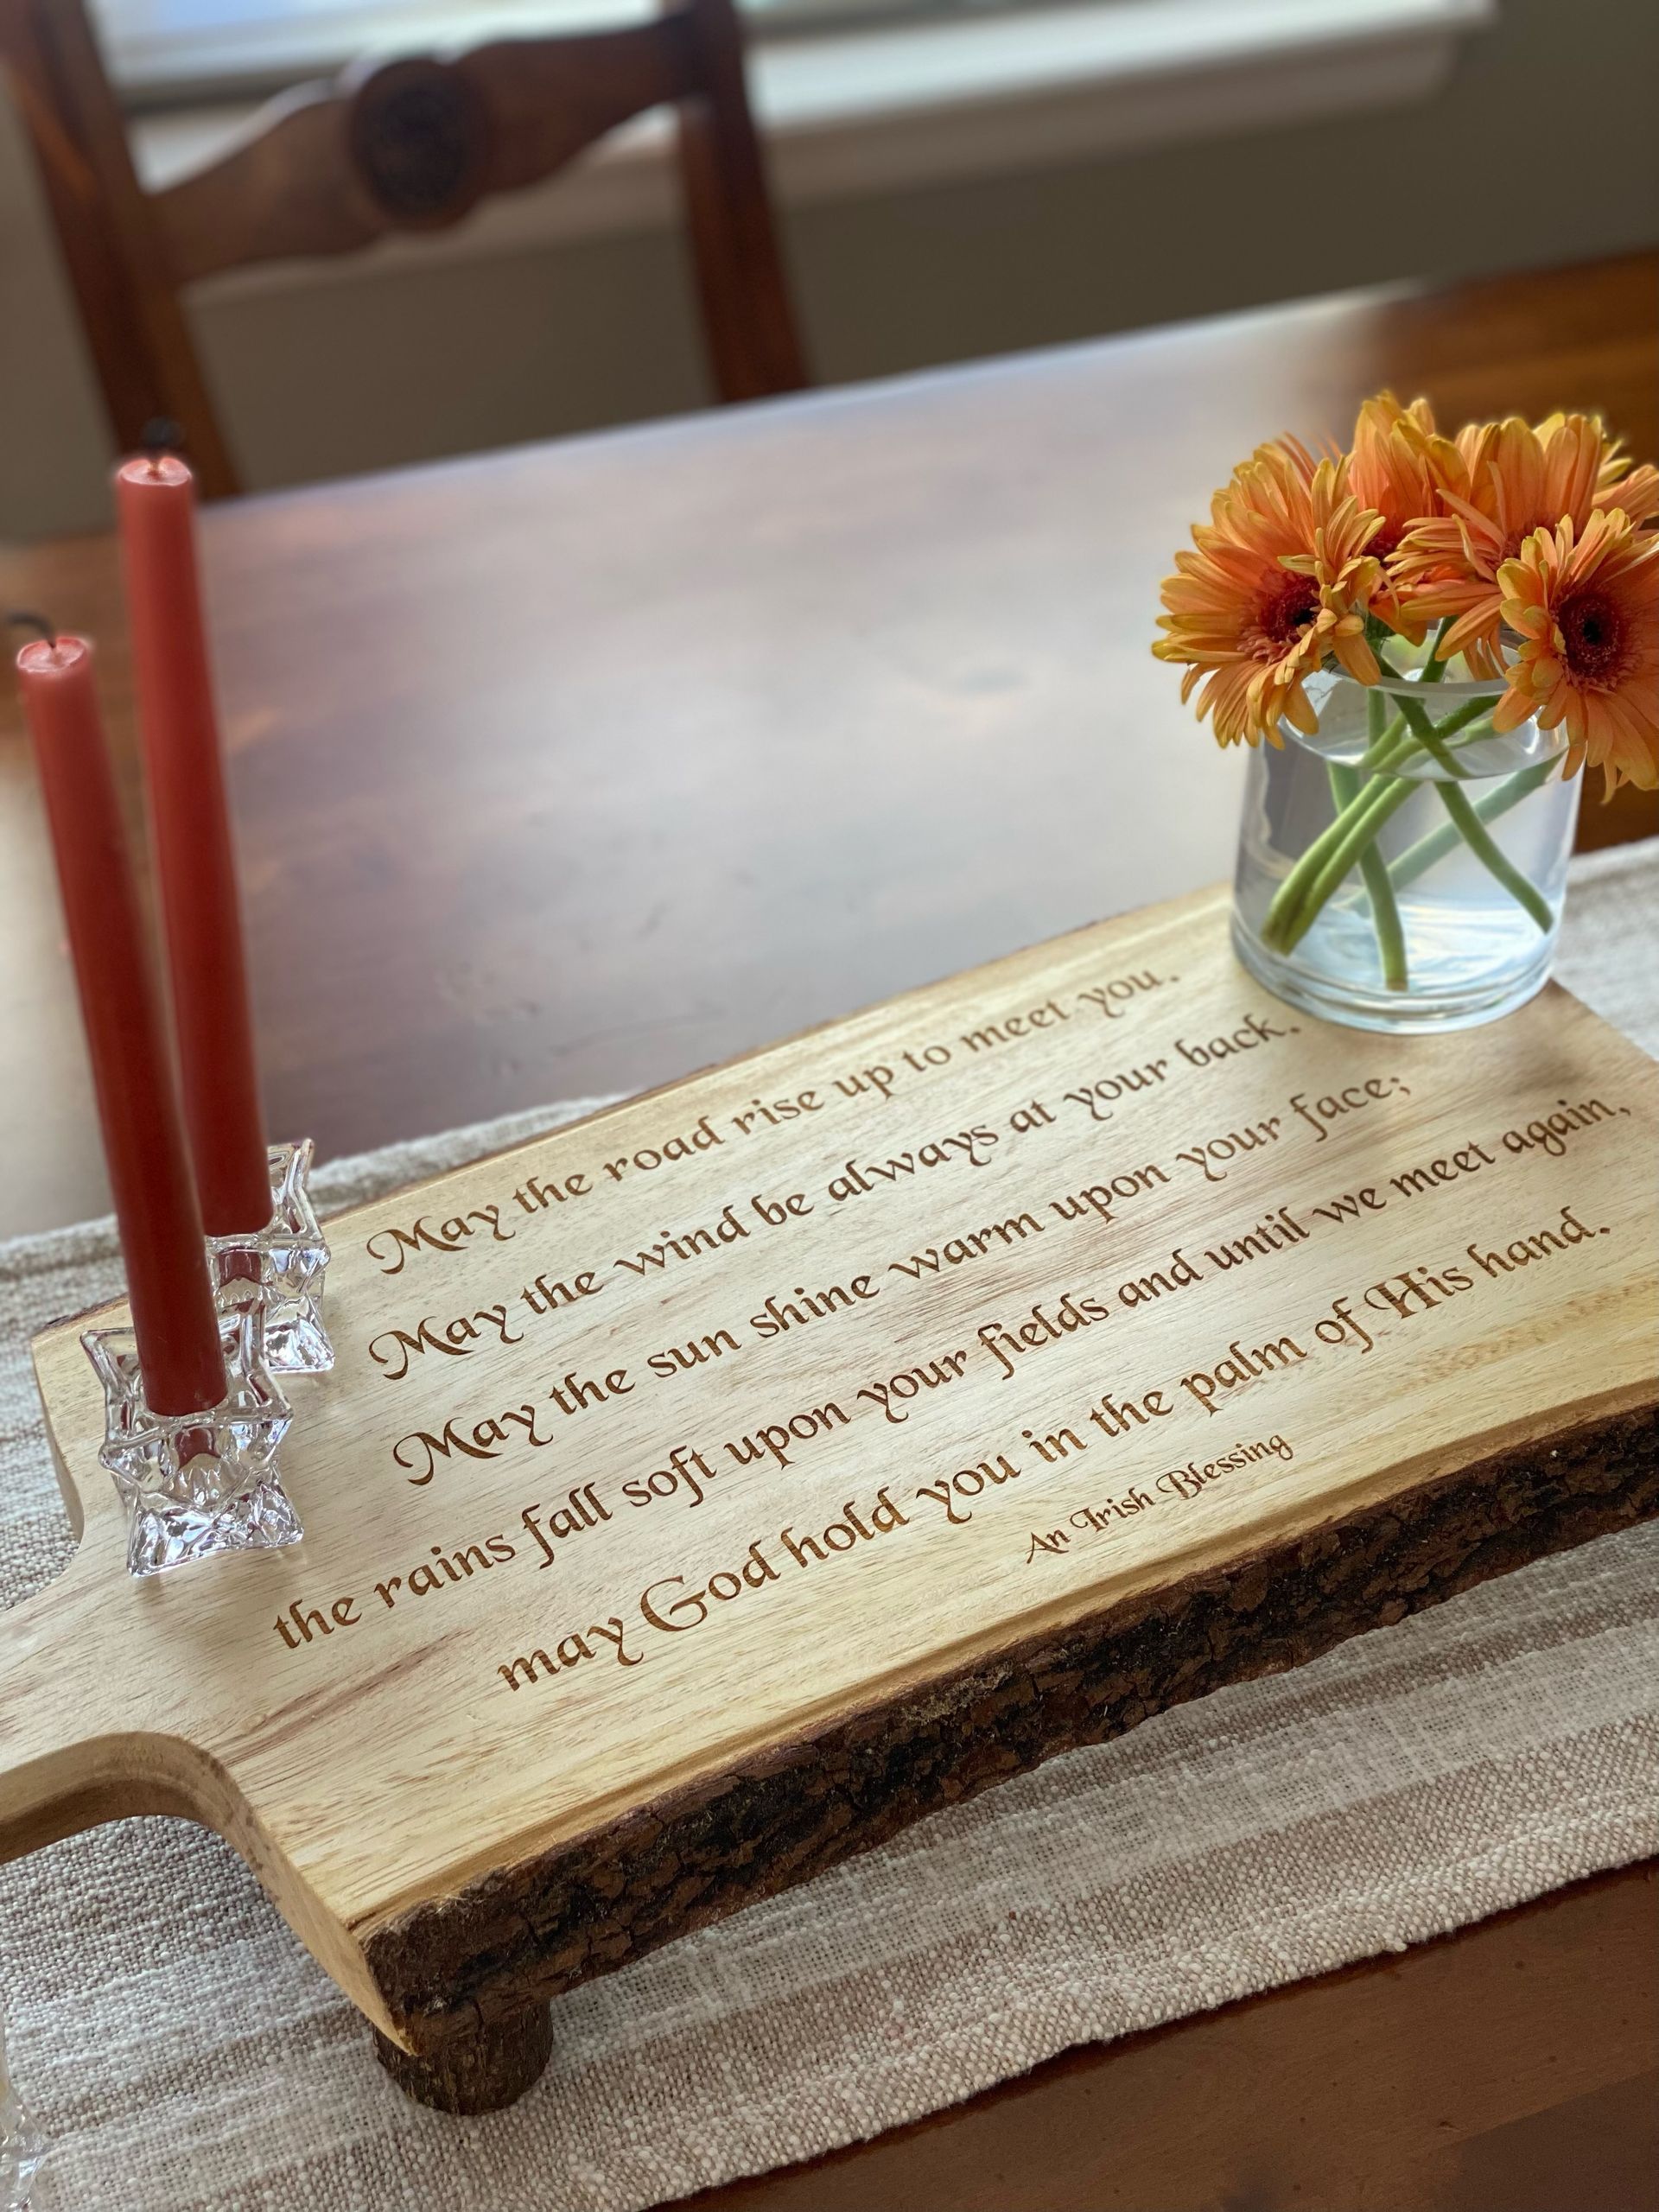 May the road rise up to meet you.
May the wind be always at your back.
May the sun shine warm upon your face;
the rains fall soft upon your fields and until we meet again,
may God hold you in the palm of His hand.
An Irish Blessing